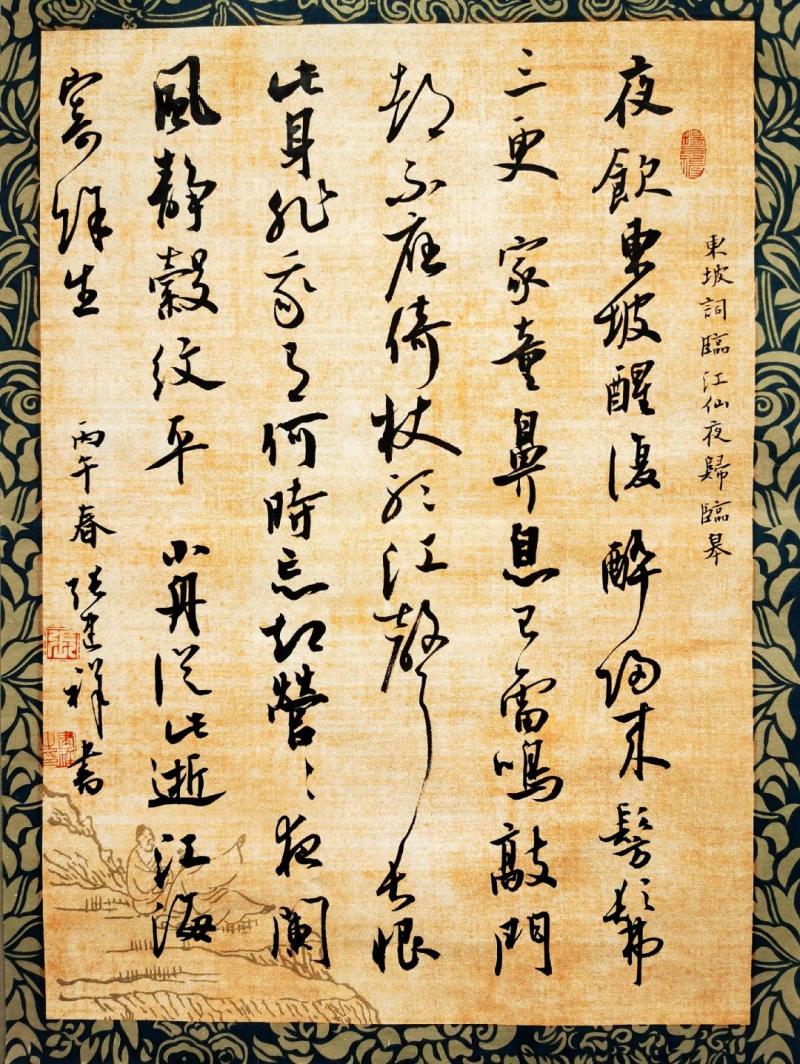 東坡詞臨江仙夜歸臨皋
夜飲東坡醒復醉歸來髣髴
三更 家童鼻息已雷鳴敲門
都不應倚杖聽江聲 長恨
此身非我有何時忘却營〻夜闌
風靜縠紋平 小舟從此逝江海
寄餘生
丙午春 張建祥書